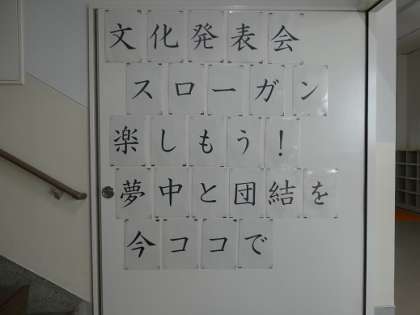 文化発表会
スローガン
楽しもう！
夢中と団結を
今ココで